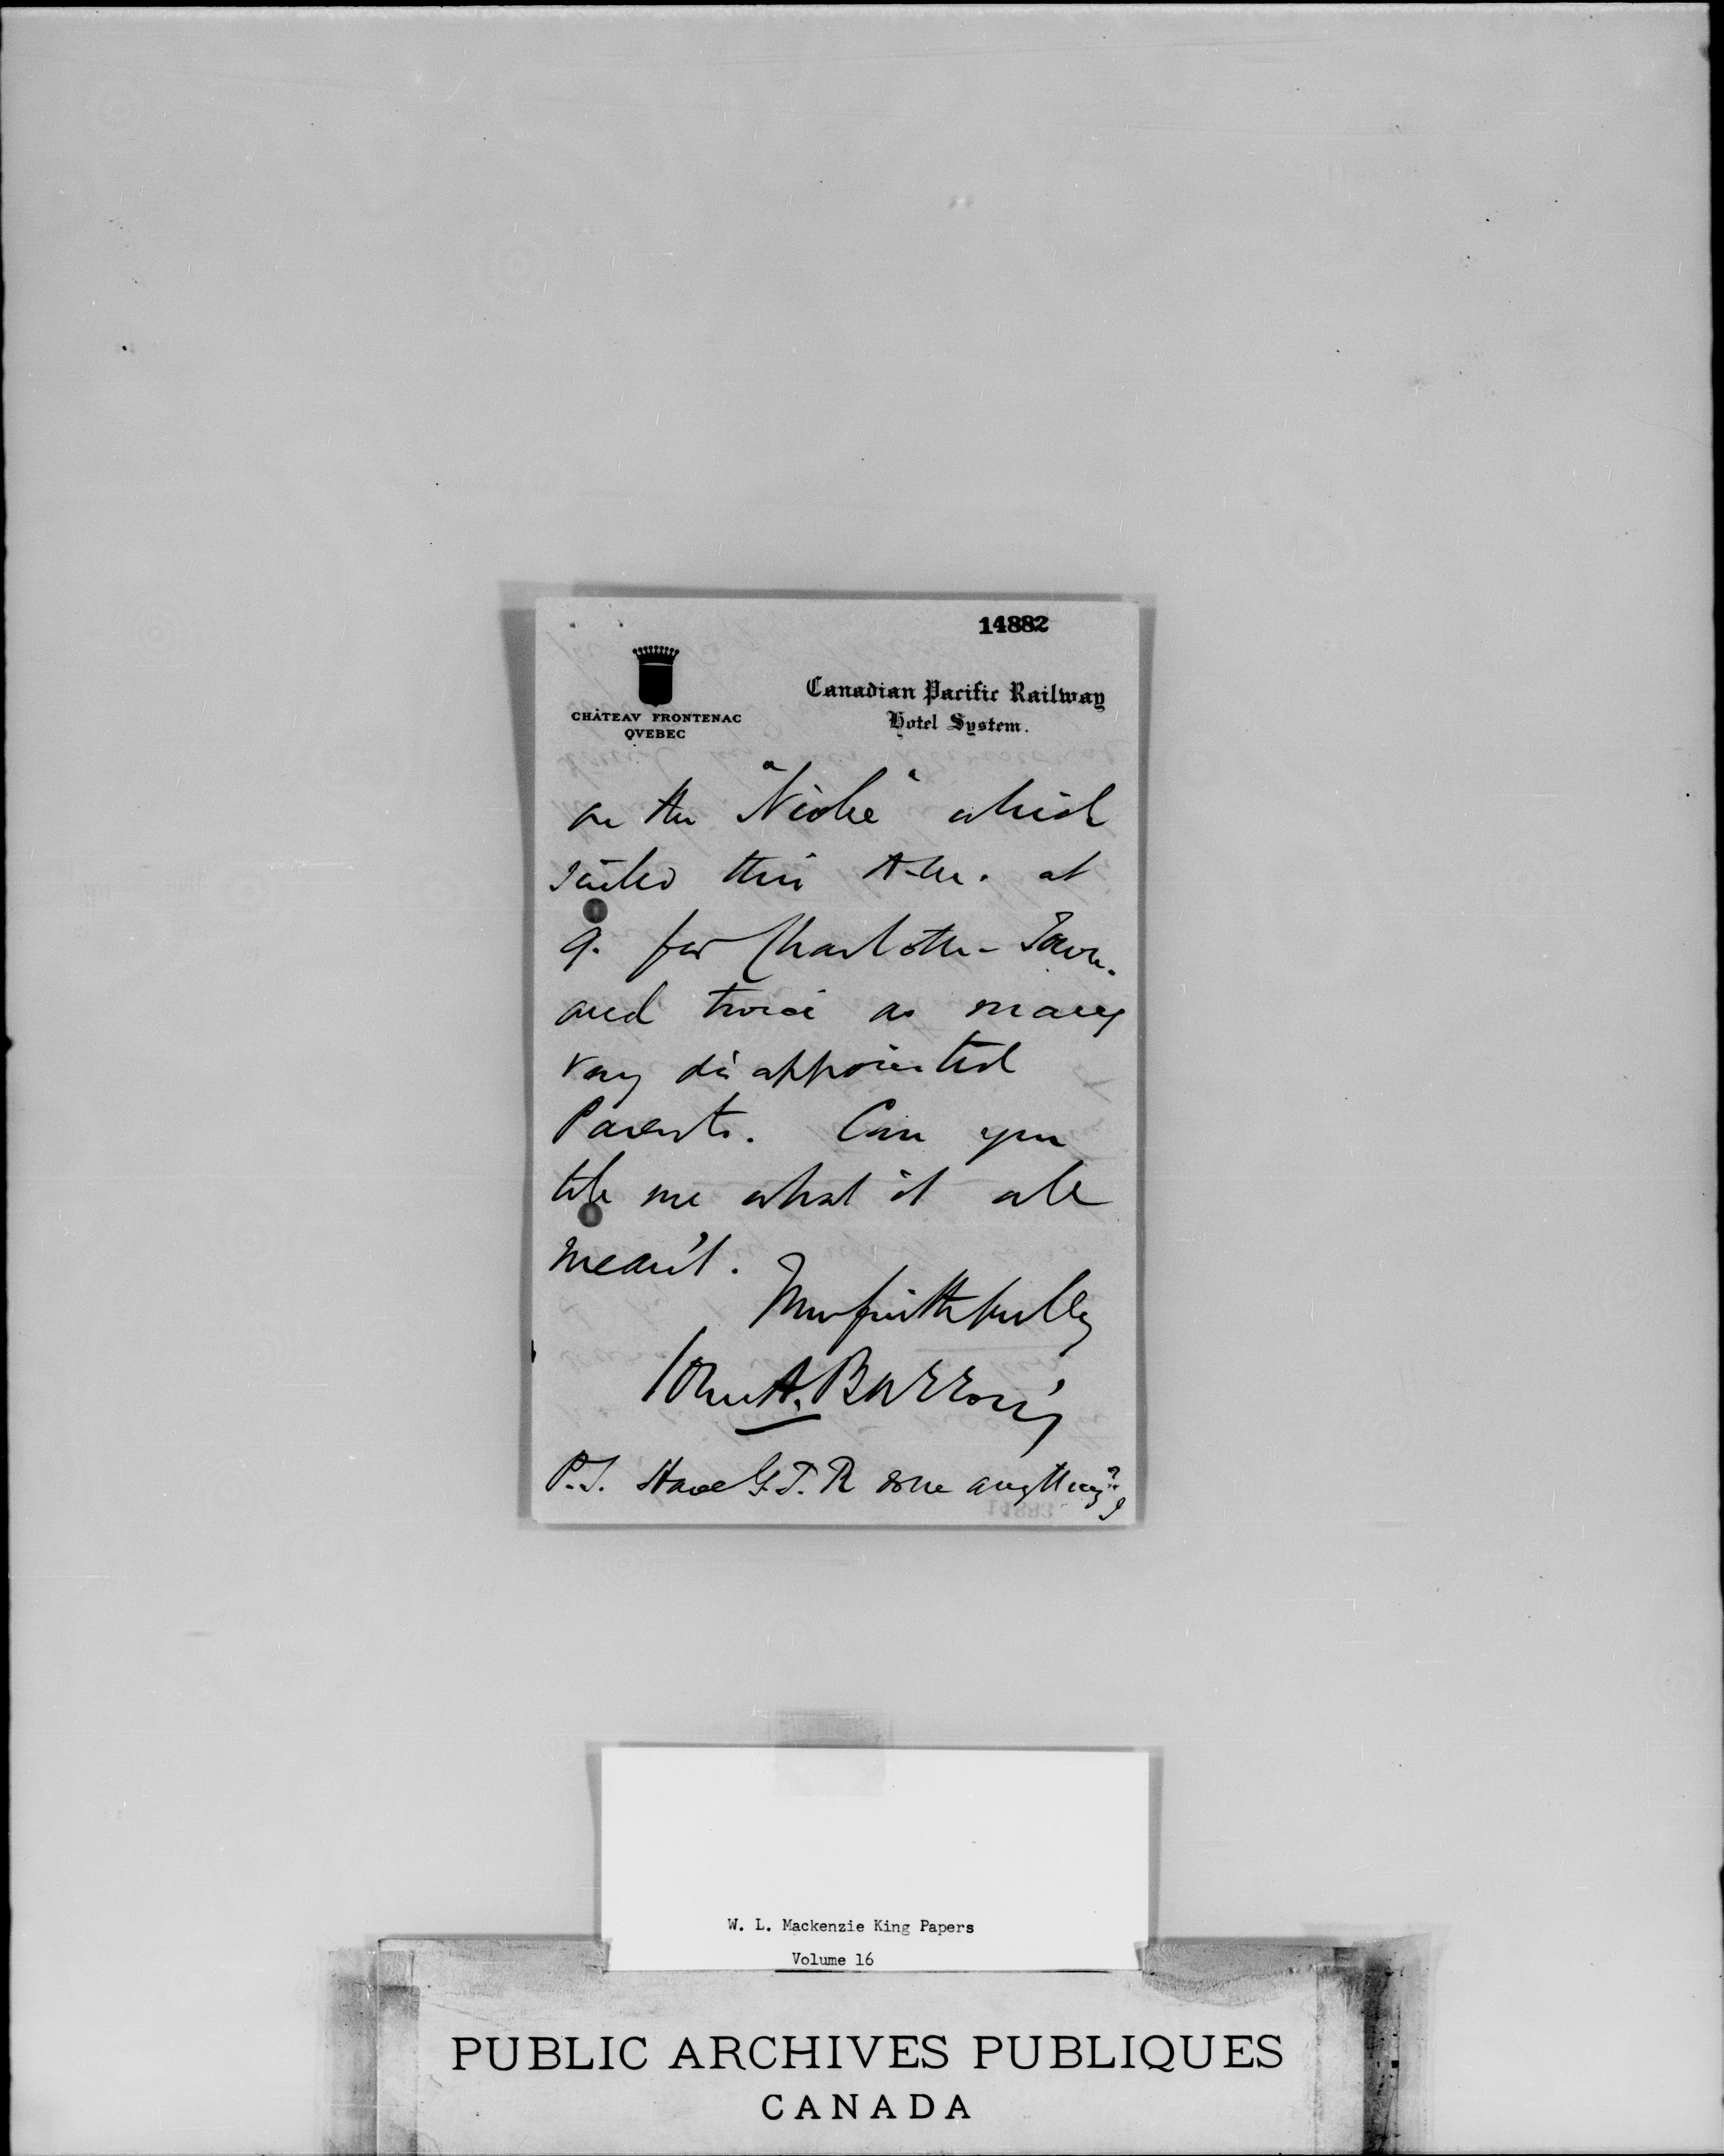 14882
CHÂTEAV FRONTENAC
QVEBEC
Canadian Pacific Railway
Hotel System.
on the "Niobe" which
sailed this A.M. at
9. for Charlotte-Town.
and twice as many
very disappointed
Parents. Can you
tell me what it all
mean't.
Yours faithfully
John A. Barron
P.S. Have G.T.R done anything?
W. L. Mackenzie King Papers
Volume 16
PUBLIC ARCHIVES PUBLIQUES
CANADA